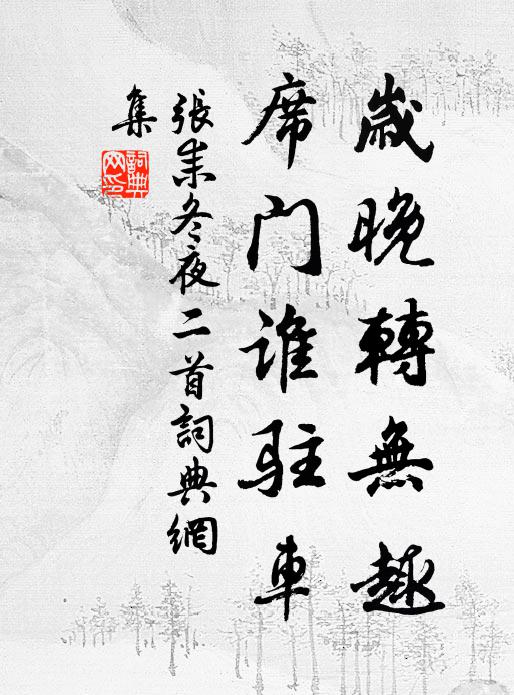 歲晚轉無趣
席门谁驻車
張耒冬夜二首詞典網
集
詞典
网印